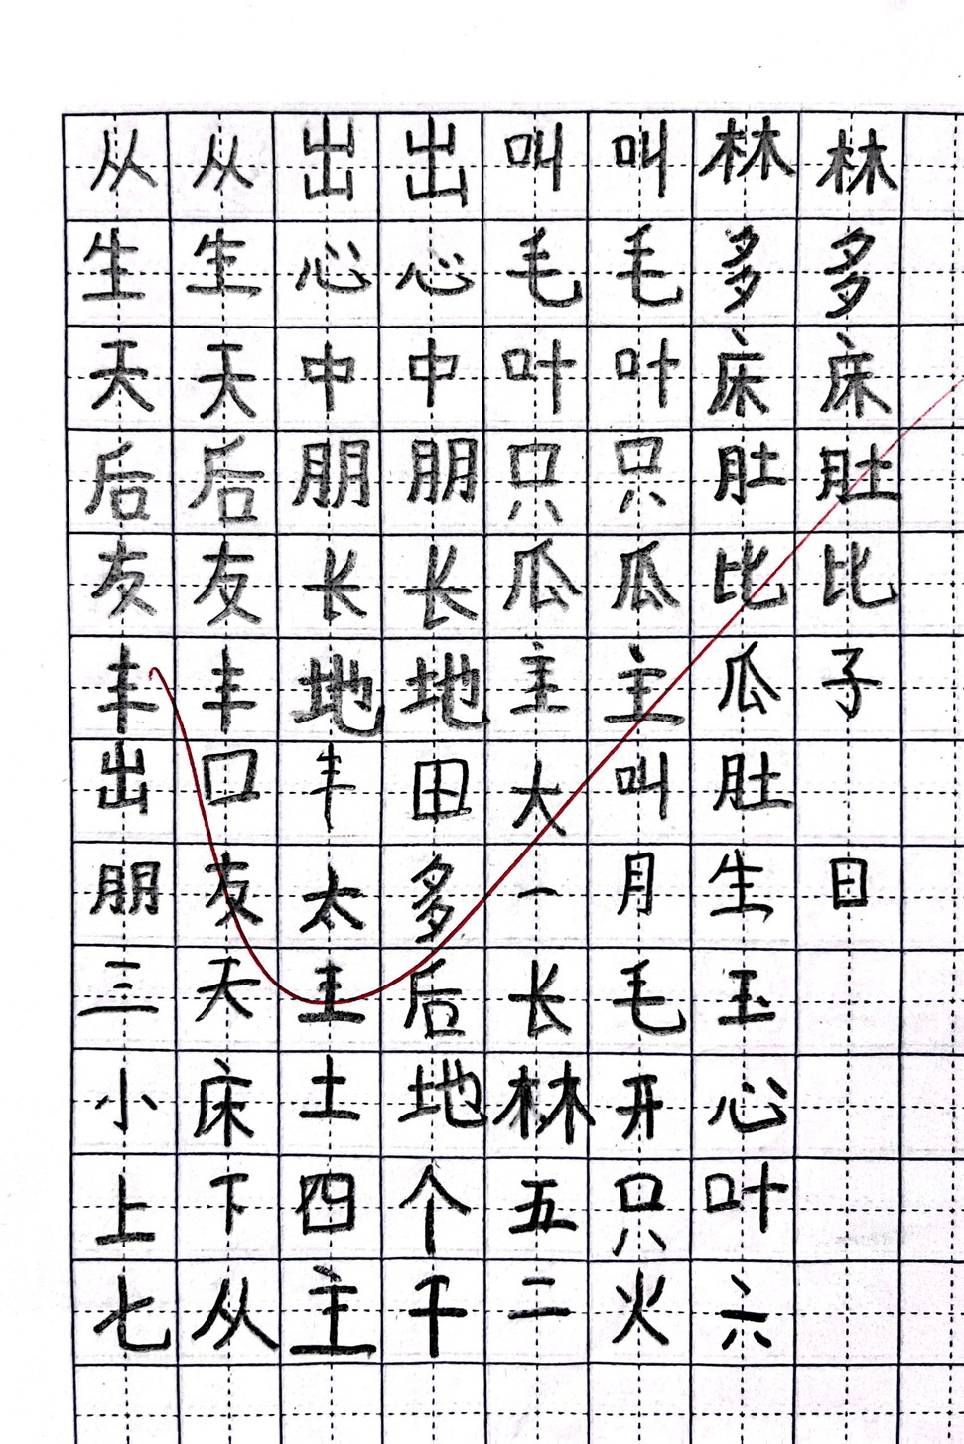 从从出出叫叫林林
生生心心毛毛多多
天天中中叶叶床床
后后朋朋只只肚肚
友友长长瓜瓜比比
丰丰地地主主瓜子
出口丰田大叫肚
朋友太多一月生日
三天王后长毛玉
小床土地林开心
上下四个五只叶
七从主干二火六